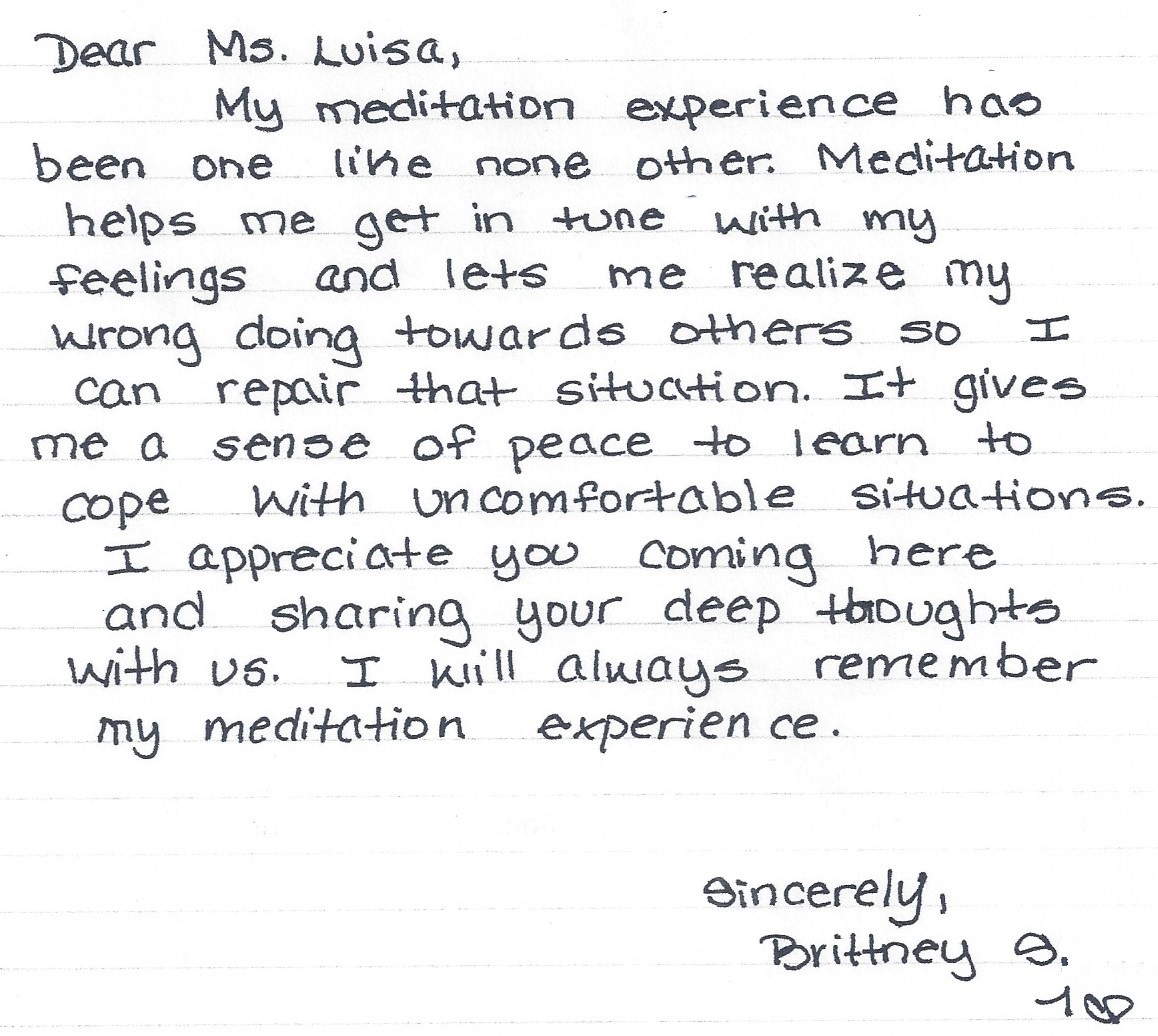 Dear Ms. Luisa,
My meditation experience has
been one like none other. Meditation
helps me get in tune with my
feelings and lets me realize my
wrong doing towards others so I
can repair that situation. It gives
me a sense of peace to learn to
cope with uncomfortable situations.
I appreciate you coming here
and sharing your deep thoughts
with us. I will always remember
my meditation experience.
Sincerely,
Brittney S.
1♡